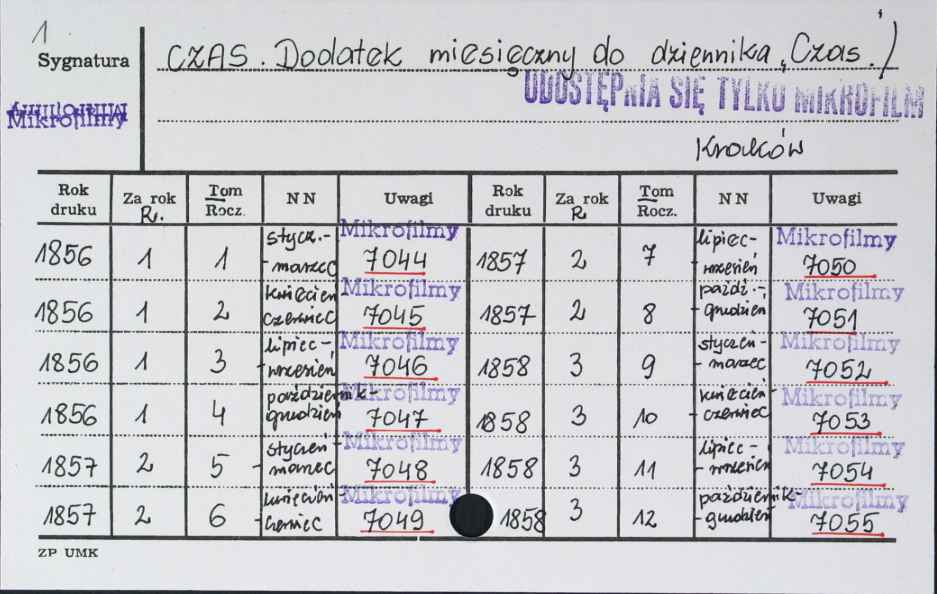 1
Sygnatura
CZAS. Dodatek miesięczny do dziennika „Czas."/
Mikrofilmy
Mikrofilmy
UDOSTĘPNIA SIĘ TYLKO MIKROFILM
Kraków
Rok druku Za rok R. Tom Rocz. NN Uwagi Rok druku Za rok R. Tom Rocz. NN Uwagi
1856 1 1 stycz.-marzec Mikrofilmy 7044 1857 2 7 lipiec-wrzesień Mikrofilmy 7050
1856 1 2 kwiecień czerwiec Mikrofilmy 7045 1857 2 8 paźdź.-grudzień Mikrofilmy 7051
1856 1 3 lipiec-wrzesień Mikrofilmy 7046 1858 3 9 styczeń-marzec Mikrofilmy 7052
1856 1 4 październik-grudzień Mikrofilmy 7047 1858 3 10 kwiecień-czerwiec Mikrofilmy 7053
1857 2 5 styczeń-marzec Mikrofilmy 7048 1858 3 11 lipiec-wrzesień Mikrofilmy 7054
1857 2 6 kwiecień-czerwiec Mikrofilmy 7049 1858 3 12 październik-grudzień Mikrofilmy 7055
ZP UMK